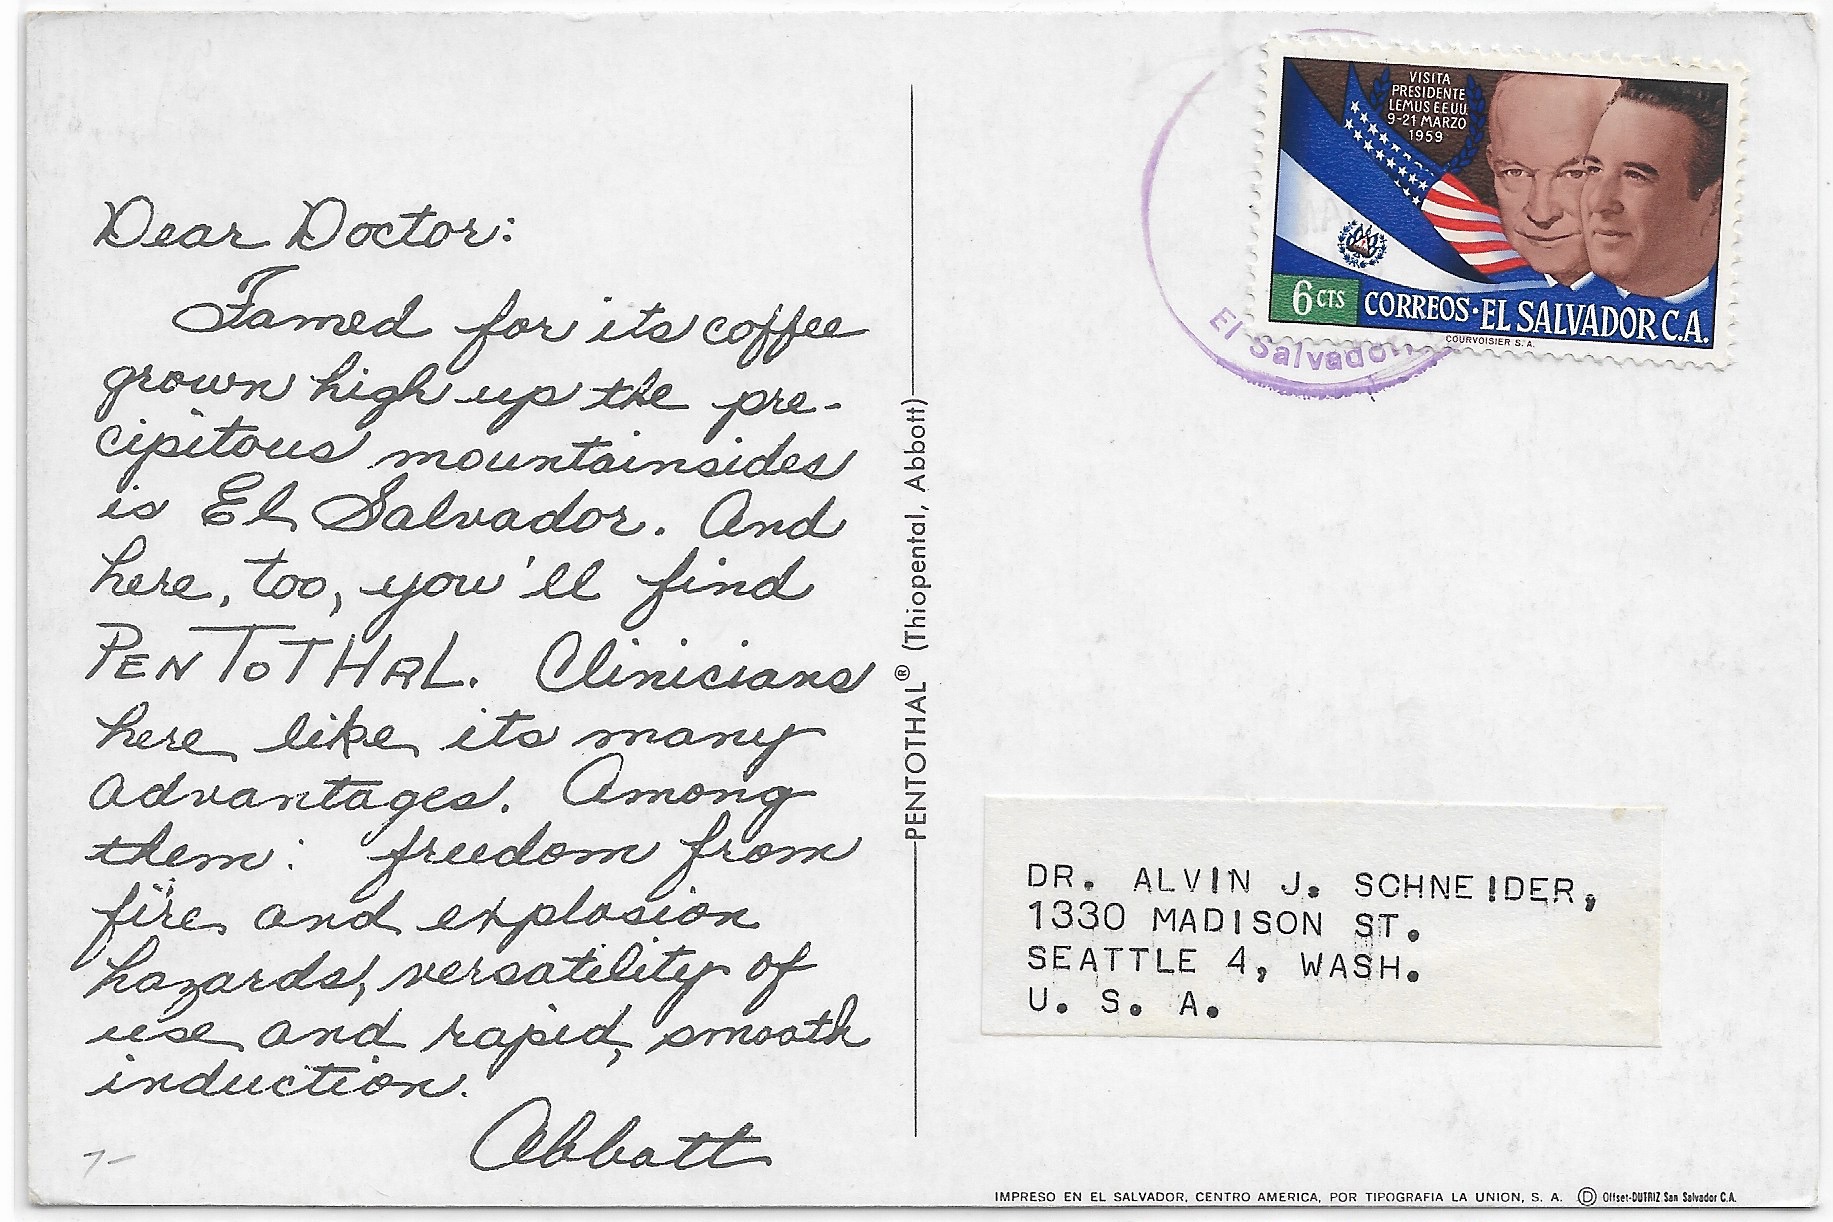 Dear Doctor:
Famed for its coffee
grown high up the pre-
cipitous mountainsides
is El Salvador. And
here, too, you'll find
PENTOTHAL. Clinicians
here like its many
advantages. Among
them: freedom from
fire and explosion
hazards, versatility of
use and rapid, smooth
induction.
Abbott
7-
PENTOTHAL® (Thiopental, Abbott)
VISITA
PRESIDENTE
LEMUS EE.UU.
9-21 MARZO
1959
6 CTS CORREOS·EL SALVADOR C.A.
COURVOISIER S.A.
El Salvador
DR. ALVIN J. SCHNEIDER,
1330 MADISON ST.
SEATTLE 4, WASH.
U. S. A.
IMPRESO EN EL SALVADOR, CENTRO AMERICA, POR TIPOGRAFIA LA UNION, S. A. Ⓓ Offset-DUTRIZ San Salvador C.A.